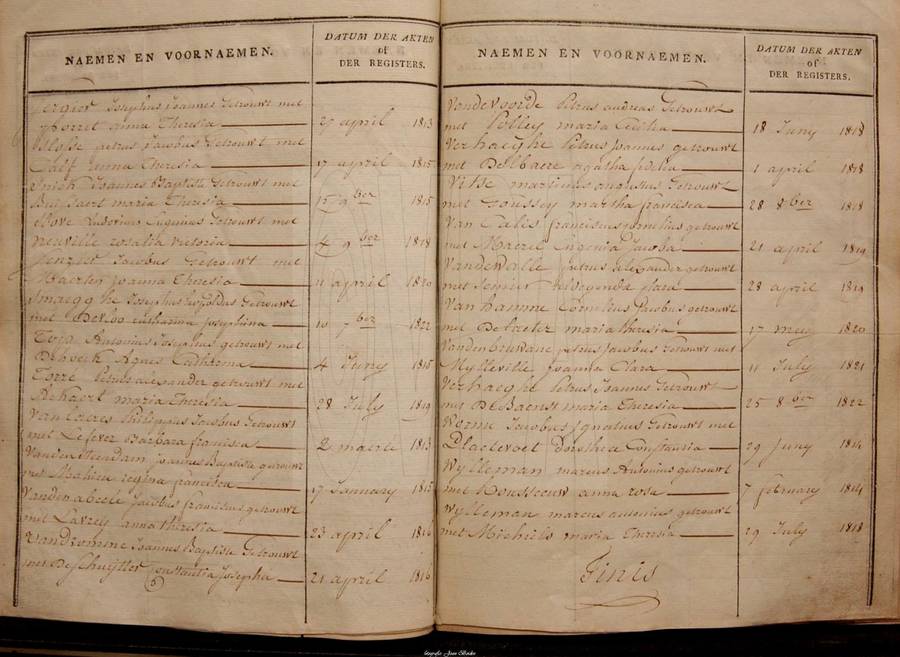 NAEMEN EN VOORNAEMEN.
DATUM DER AKTEN
of
DER REGISTERS.
Josephus Joannes Getrouwt met
anna Theresia 27 april 1813
petrus Jacobus Getrouwt met
Calf anna Theresia 17 april 1815
Joannes Baptiste Getrouwt met
maria Theresia 15 9ber 1815
Bove Ludovicus Eugenius Getrouwt met
neuville rosalia victoria 4 9ber 1818
Jacobus Getrouwt met
Maerten joanna Theresia 11 april 1820
Smaegghe Josephus Leopoldus Getrouwt
met catharina Josephina 10 7ber 1822
Antonius Josephus getrouwt met
Deboeck Agnes Catharina 4 Juny 1815
Torré Petrus alexander getrouwt met
maria Theresia 28 July 1819
Philippus Jacobus Getrouwt
met Lefever Barbara francisca 2 maerte 1813
joannes Baptiste getrouwt
met Mahieu regina francisca 17 January 1815
Vandenabeele jacobus franciscus getrouwt
met anna theresia 23 april 1816
Vandromme Joannes Baptiste Getrouwt
met DeSchuytter constantia Josepha 21 april 1816
NAEMEN EN VOORNAEMEN.
DATUM DER AKTEN
of
DER REGISTERS.
Vandevoorde Petrus andreas Getrouwt
met Polley maria Cecilia 18 Juny 1818
Verhaeghe Petrus joannes getrouwt
met Delbaere agatha 1 april 1818
Vitse marinus augustus Getrouwt
met Coussey martha francisca 28 8ber 1818
Van Calis franciscus Cornelius getrouwt
met Eugenia Jacoba 21 april 1819
Vandewalle petrus alexander getrouwt
met clara 28 april 1819
Van hamme Cornelius jacobus getrouwt
met maria theresia 17 mey 1820
petrus Jacobus Getrouwt met
joanna Clara 11 July 1821
Verhaeghe Petrus Joannes Getrouwt
met DeBaenst maria Theresia 25 8ber 1822
Jacobus Ignatius Getrouwt met
Plaetevoet Dorothea Constantia 29 Juny 1814
Wylleman marcus Antonius getrouwt
met Rousseeuw anna rosa 7 february 1814
Wylleman marcus antonius getrouwt
met Michiels maria Theresia 29 July 1818
Finis